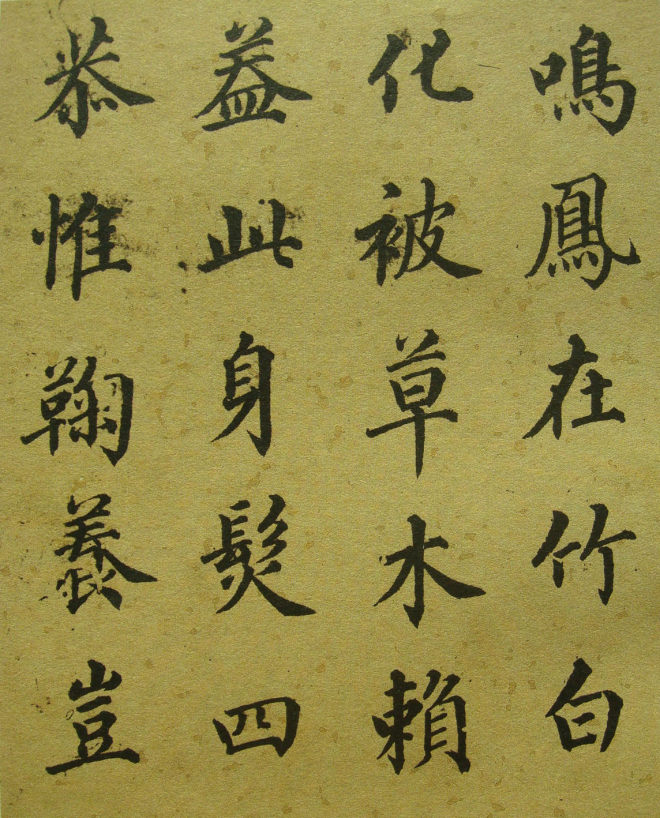 鳴鳳在竹白
化被草木賴
盖此身髮四
恭惟鞠養豈